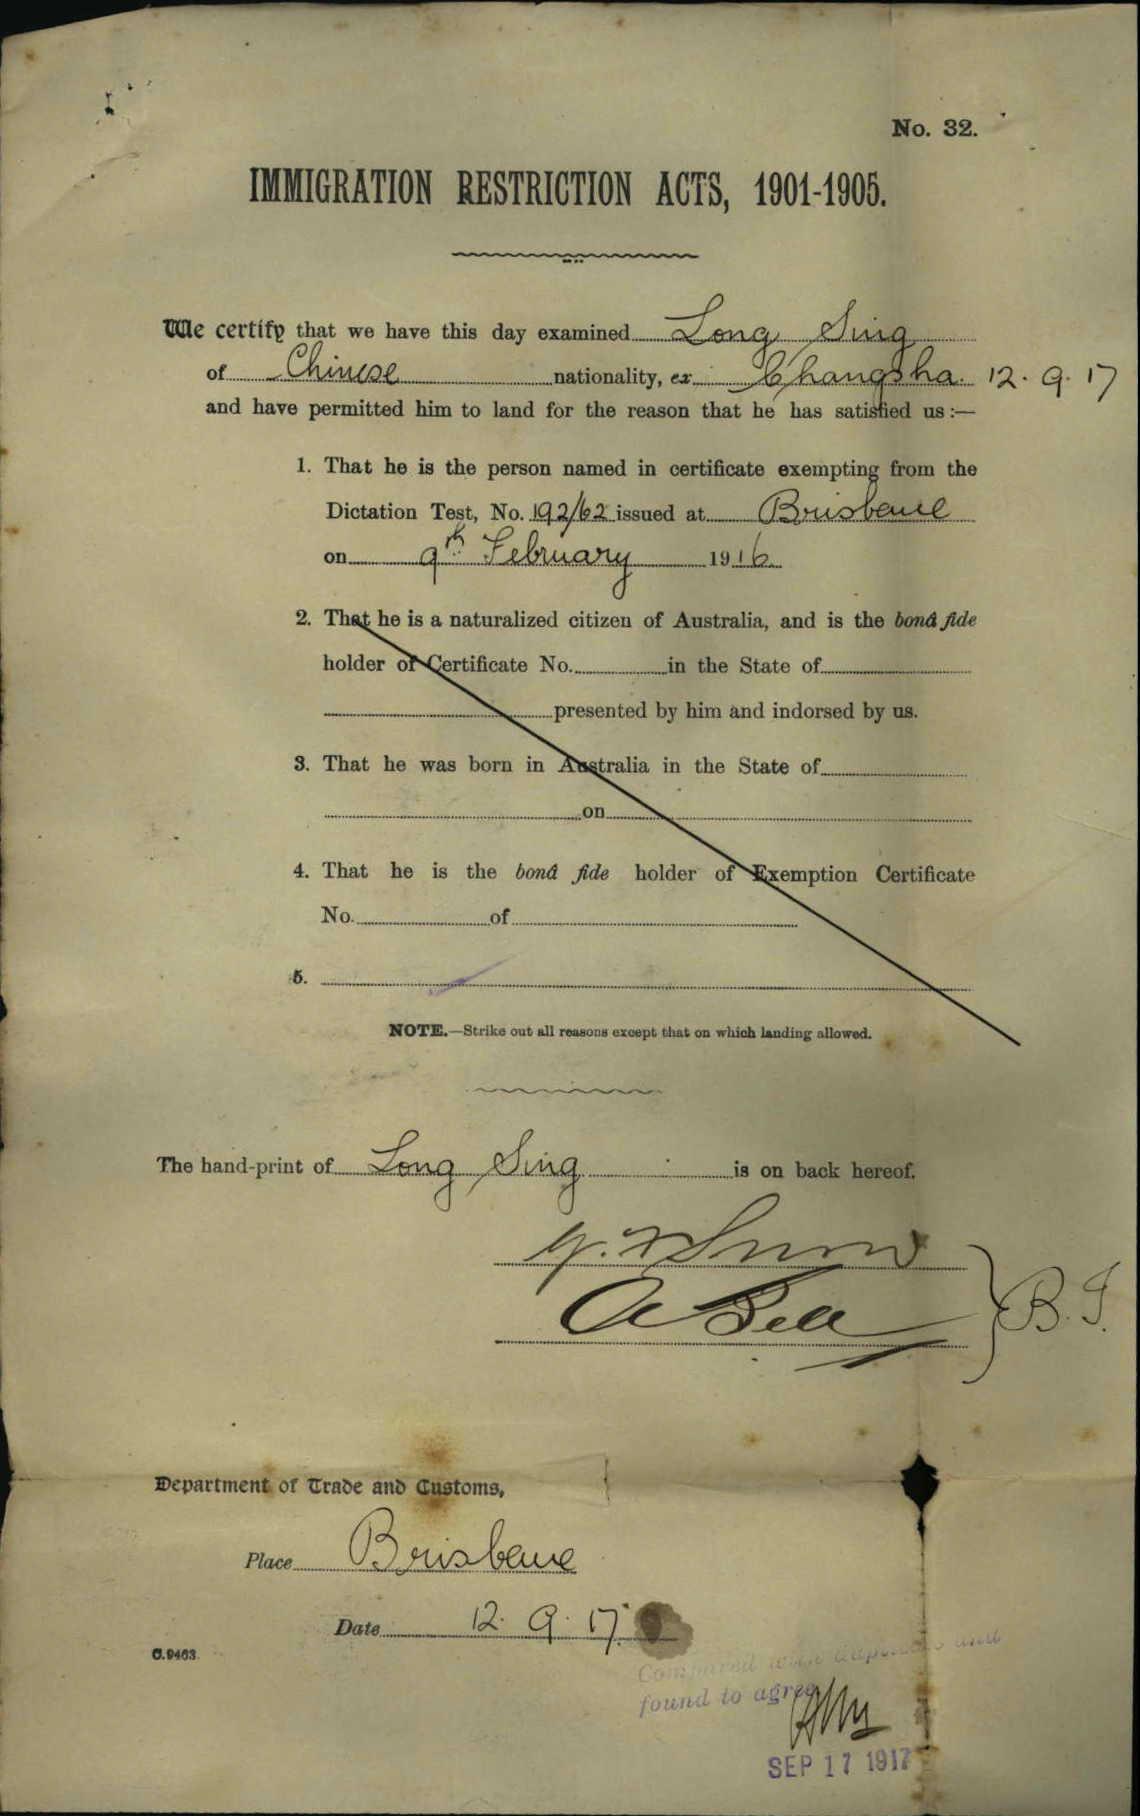 No. 32.
IMMIGRATION RESTRICTION ACTS, 1901-1905.
We certify that we have this day examined Long Sing
of Chinese nationality, ex Changsha. 12. 9. 17
and have permitted him to land for the reason that he has satisfied us :—
1. That he is the person named in certificate exempting from the
Dictation Test, No. 192/62 issued at Brisbane
on 9th February 1916
2. That he is a naturalized citizen of Australia, and is the bonâ fide
holder of Certificate No. in the State of
presented by him and indorsed by us.
3. That he was born in Australia in the State of
on
4. That he is the bonâ fide holder of Exemption Certificate
No. of
5.
NOTE.—Strike out all reasons except that on which landing allowed.
The hand-print of Long Sing is on back hereof.
A Bell
B. I.
Department of Trade and Customs,
Place Brisbane
Date 12. 9. 17.
C.9463.
Compared with duplicate and
found to agree
SEP 17 1917